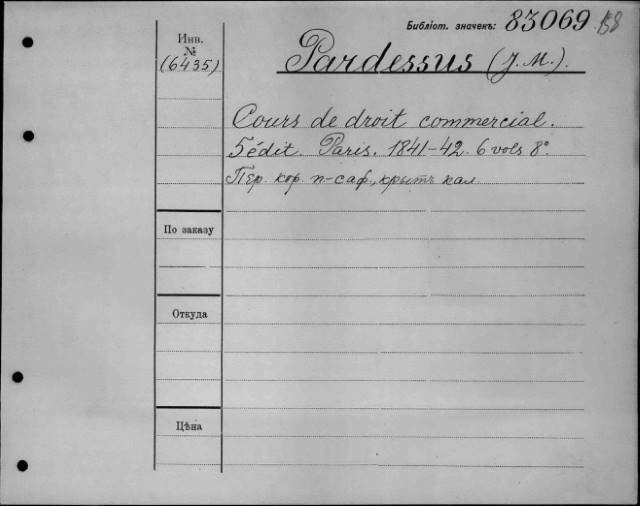 Библіот. значекъ: 83069
Инв.
№
(6435)
Pardessus (J. M.).
Cours de droit commercial.
5 édit. Paris. 1841-42. 6 vols 8°.
Пер. кор. п-саф., крытъ кал.
По заказу
Откуда
Цѣна